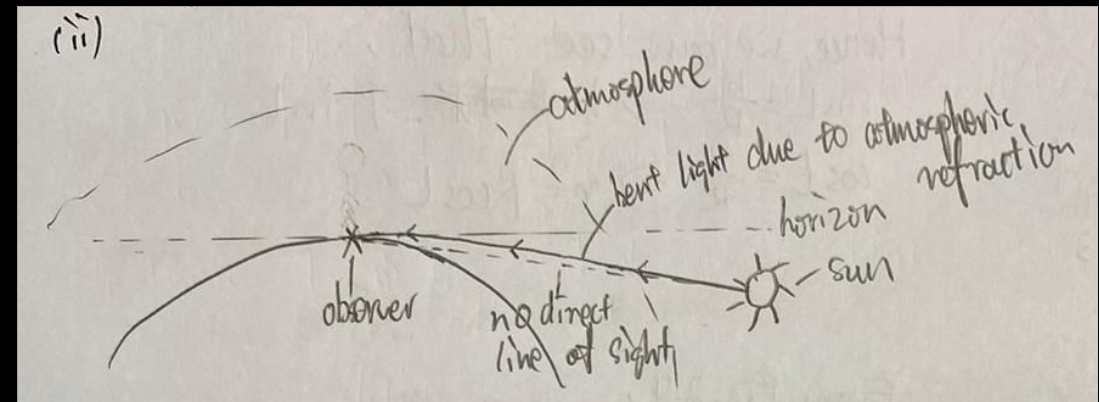 (ii)
atmosphere
bent light due to atmospheric
refraction
horizon
sun
observer
no direct
line of sight